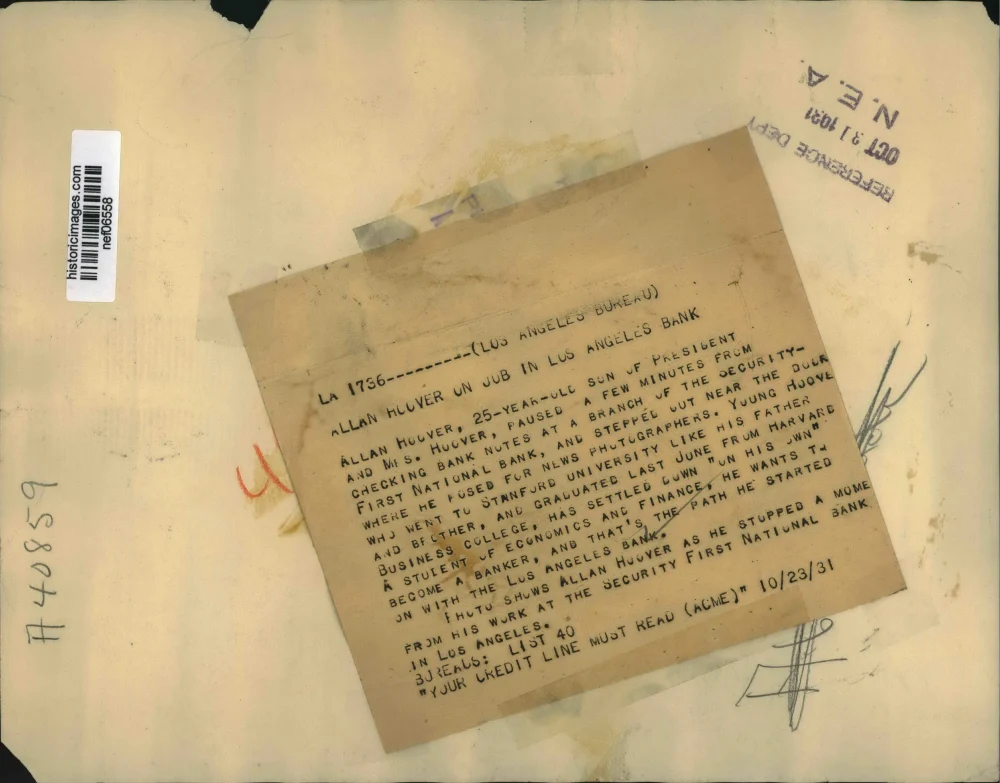 historicimages.com
nef06558
N. E. A.
OCT 31 1931
REFERENCE DEPT
A40859
LA 1736----------(LOS ANGELES BUREAU)
ALLAN HOOVER ON JOB IN LOS ANGELES BANK
ALLAN HOOVER, 25-YEAR-OLD SON OF PRESIDENT
AND MRS. HOOVER, PAUSED A FEW MINUTES FROM
CHECKING BANK NOTES AT A BRANCH OF THE SECURITY-
FIRST NATIONAL BANK, AND STEPPED OUT NEAR THE DOOR
WHERE HE POSED FOR NEWS PHOTOGRAPHERS. YOUNG HOOVE
WHO WENT TO STANFORD UNIVERSITY LIKE HIS FATHER
AND BROTHER, AND GRADUATED LAST JUNE FROM HARVARD
BUSINESS COLLEGE, HAS SETTLED DOWN "ON HIS OWN".
A STUDENT OF ECONOMICS AND FINANCE, HE WANTS TO
BECOME A BANKER, AND THAT'S THE PATH HE STARTED
ON WITH THE LOS ANGELES BANK.
PHOTO SHOWS ALLAN HOOVER AS HE STOPPED A MOME
FROM HIS WORK AT THE SECURITY FIRST NATIONAL BANK
IN LOS ANGELES.
BUREAUS: LIST 40
"YOUR CREDIT LINE MUST READ (ACME)" 10/23/31